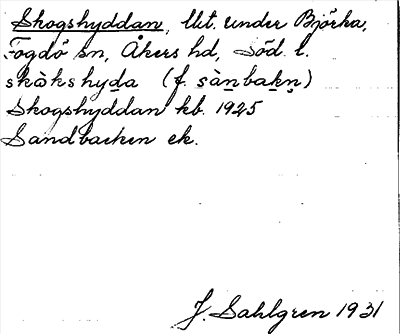 Skogshyddan, Utt. under Björka,
Fogdö sn, Åkers hd, Söd. l.
skòkshyda (f. sànbakn̥)
Skogshyddan kb. 1925
Sandbacken ek.
J. Sahlgren 1931